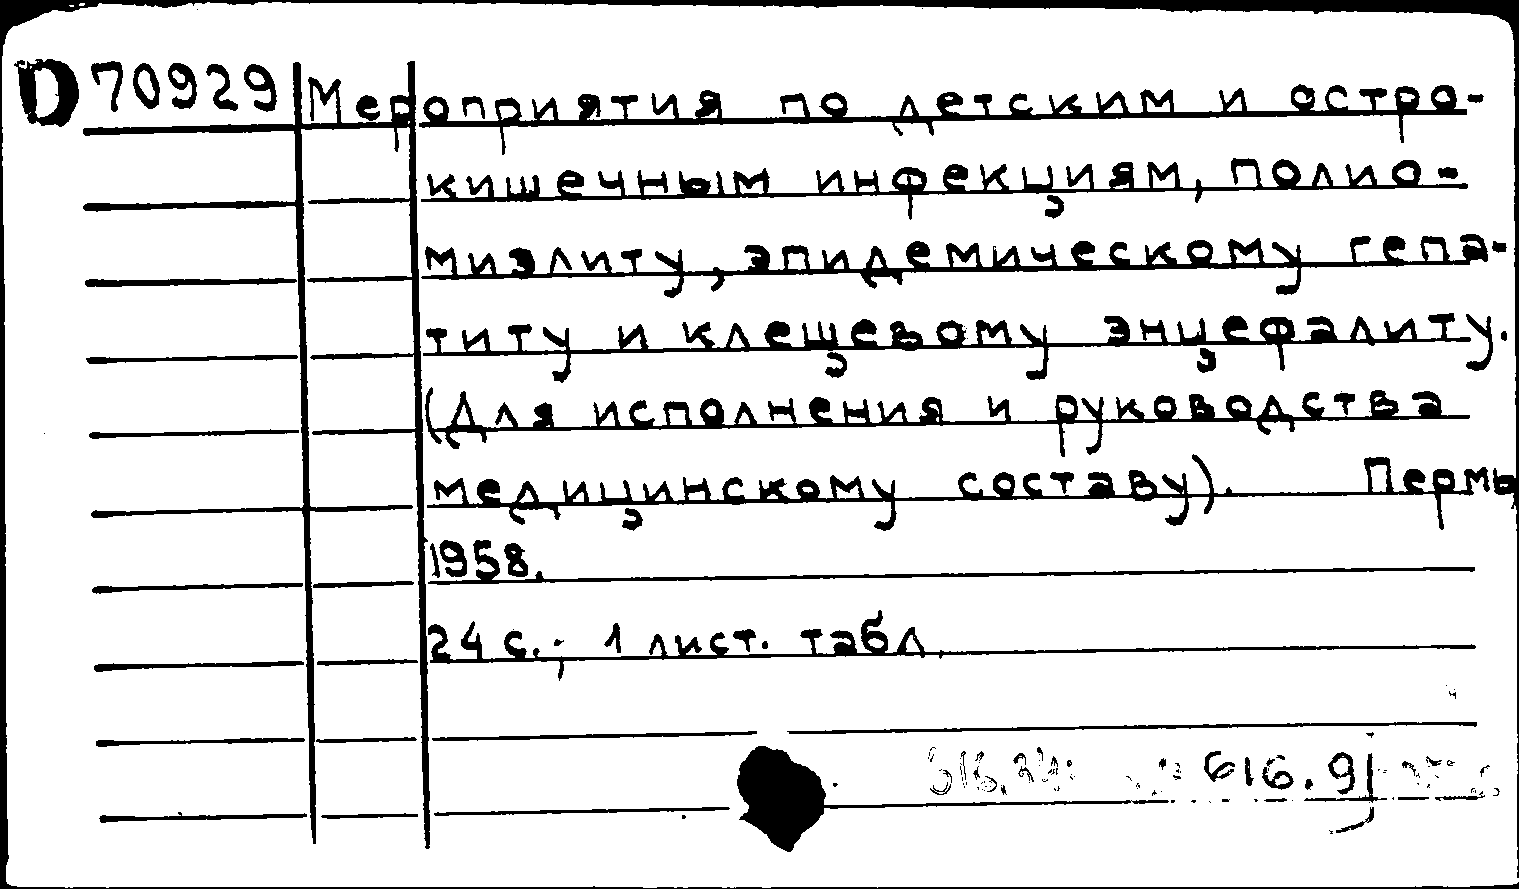 D 70929 Мероприятия по детским и остро-
кишечным инфекциям, полио-
миэлиту, эпидемическому гепа-
титу и клещевому энцефалиту.
(Для исполнения и руководства
медицинскому составу). Пермь
1958.
24 с.; 1 лист. табл.
616.9